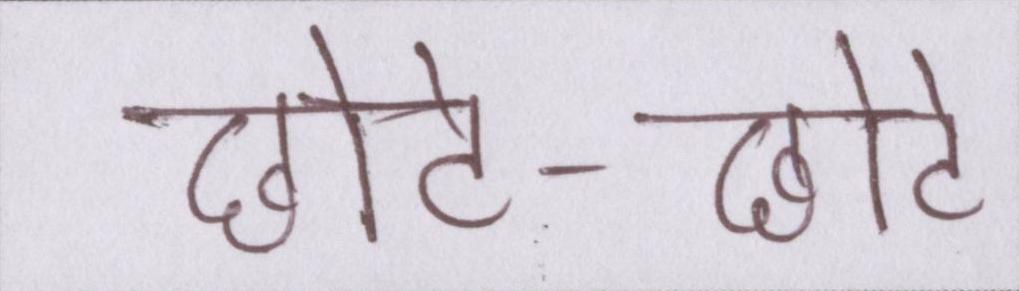 छोटे-छोटे